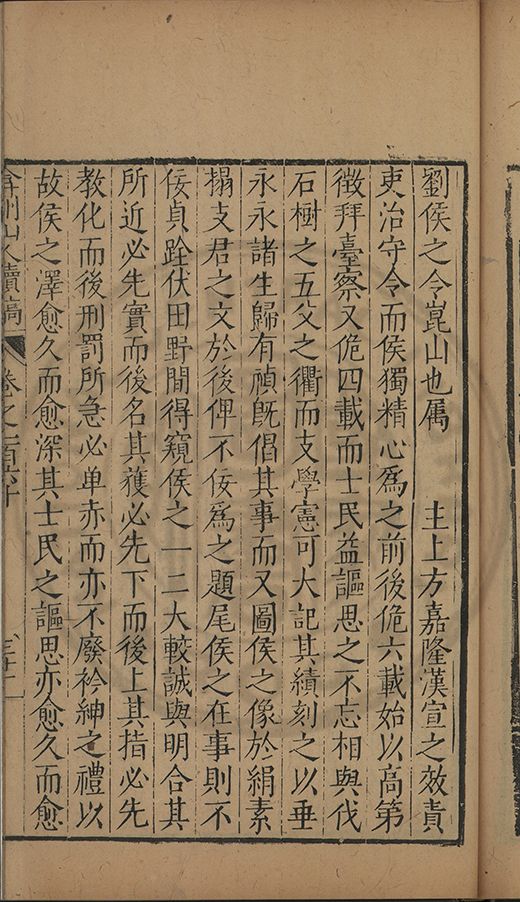 劉侯之令崑山也属　　主上方嘉隆漢宣之效責
吏治守令而侯獨精心爲之前後侂六載始以高第
徴拜臺察又侂四載而士民益謳思之不忘相與伐
石樹之五父之衢而支學憲可大記其績刻之以垂
永永諸生歸有禎旣倡其事而又圖侯之像於絹素
搨支君之文於後俾不佞爲之題尾侯之在事則不
佞貞跧伏田野間得窺侯之一二大較誠與明合其
所近必先實而後名其獲必先下而後上其指必先
教化而後刑罰所急必单赤而亦不廢衿紳之禮以
故侯之澤愈久而愈深其士民之謳思亦愈久而愈
弇州山人續稿　卷之一百六十　三十二